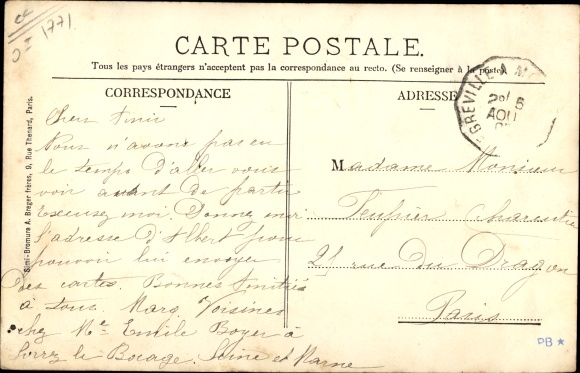 1771.
CARTE POSTALE.
Tous les pays étrangers n'acceptent pas la correspondance au recto. (Se renseigner à la poste)
CORRESPONDANCE
ADRESSE
GREVILLE A M
6
AOU
Simi-Bromure A. Breger frères, 9, Rue Thenard, Paris.
Cher
Nous n'avons pas eu
le temps d'aller vous
voir avant de partir
Excusez moi. Donnez moi
l'adresse d'Albert pour
pouvoir lui envoyer
des cartes. Bonnes amitiés
à tous. Marg. Voisines
chez Mr Emile Boyer à
le Bocage. Seine et Marne
Madame Monsieur
Charentie
21 rue du Dragon
Paris
PB